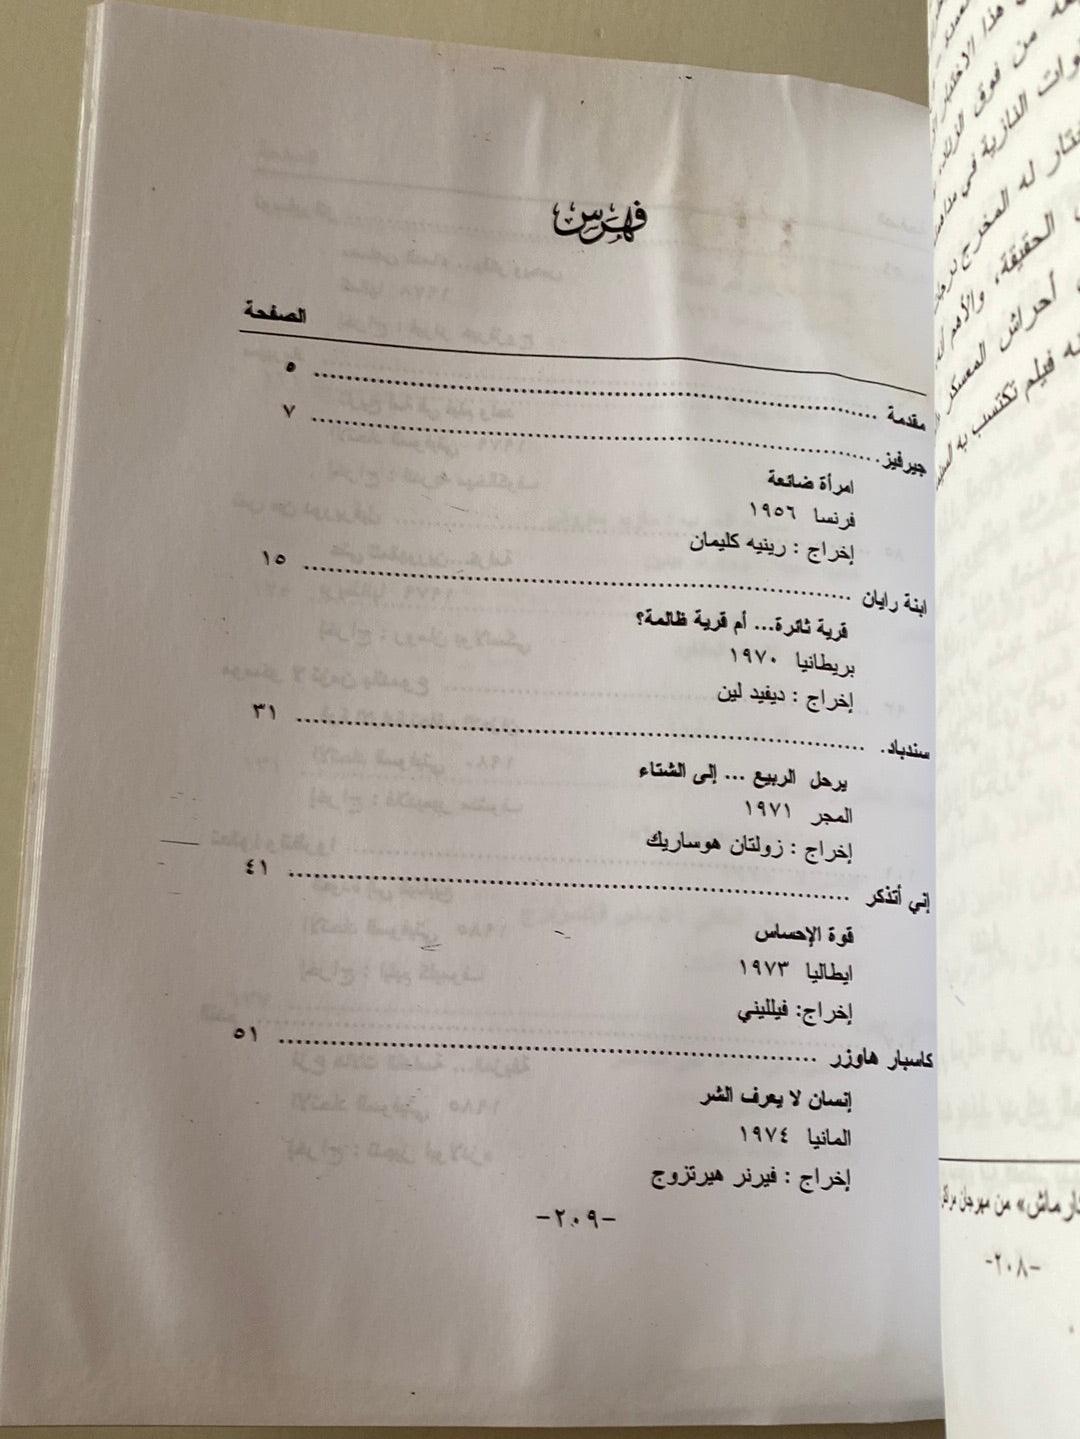 فهرس
الصفحة
مقدمة ........ ٥
جيرفيز ........ ٧
امرأة ضائعة
فرنسا ١٩٥٦
إخراج : رينيه كليمان
ابنة رايان ........ ١٥
قرية ثائرة... أم قرية ظالمة؟
بريطانيا ١٩٧٠
إخراج : ديفيد لين
سندباد ........ ٣١
يرحل الربيع ... إلى الشتاء
المجر ١٩٧١
إخراج : زولتان هوساريك
إني أتذكر ........ ٤١
قوة الإحساس
ايطاليا ١٩٧٣
إخراج: فيلليني
كاسبار هاوزر ........ ٥١
إنسان لا يعرف الشر
المانيا ١٩٧٤
إخراج : فيرنر هيرتزوج
-٢٠٩-
من فوق
له المخرج
الحقيقة، والأهم
أحراش المعسكر
فيلم تكتسب به
من مهرجان
-٢٠٨-